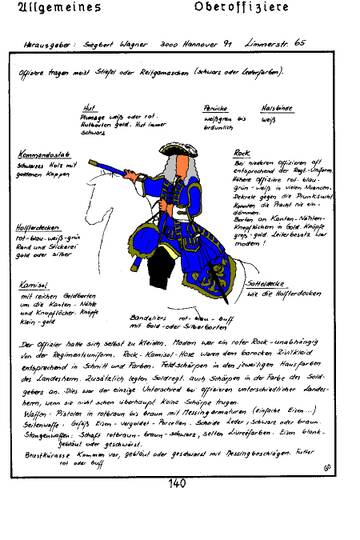 Allgemeines Oberoffiziere
Herausgeber: Siegbert Wagner 3000 Hannover 91 Limmerstr. 65
Offiziere tragen meist Stiefel oder Reitgamaschen (schwarz oder Lederfarben).
Hut
Plumage weiß oder rot.
Hutborten gold. Hut immer
schwarz
Perücke
weißgrau bis
bräunlich
Halsbinde
weiß
Kommandostab
Schwarzes Holz mit
goldenen Kappen
Rock
Bei niederen Offizieren oft
entsprechend der Regt.-Uniform.
Höhere Offiziere rot-blau-
grün-weiß in vielen Nuancen.
Dekrete gegen die Prunksucht
konnten die Pracht nie ein-
dämmen.
Borten an Kanten-Nähten-
Knopflöchern in Gold. Knöpfe
groß-gold Leiterbesatz war
modern!
Halfterdecken
rot-blau-weiß-grün
Rand und Stickerei
gold oder silber
Kamisol
mit reichen Goldborten
um die Kanten-Nähte
und Knopflöcher. Knöpfe
Klein-gold
Satteldecke
wie die Halfterdecken
Bandeliers rot-blau-buff
mit Gold-oder Silberborten
Der Offizier hatte sich selbst zu kleiden. Modern war ein roter Rock-unabhängig
von der Regimentsuniform. Rock-Kamisol-Hose waren dem barocken Zivilkleid
entsprechend in Schnitt und Farben. Feldschärpen in den jeweiligen Hausfarben
des Landesherrn. Zusätzlich legten Soldregt. auch Schärpen in der Farbe des Sold-
gebers an. Dies war der einzige Unterschied bei Offizieren unterschiedlicher Landes-
herrn, wenn sie nicht schon überhaupt keine Schärpe trugen.
Waffen-Pistolen in rotbraun bis braun mit Messingarmaturen (einfache Eisen...)
Seitenwaffe. Gefäß Eisen-vergoldet-Porzellan. Scheide Leder; Schwarz oder braun.
Stangenwaffen: Schaft rotbraun-braun-schwarz, selten Livreefarben. Eisen blank-
gebläut oder geschwärzt.
Brustkürasse kommen vor, gebläut oder geschwärzt mit Messingbeschlägen. Futter
rot oder buff
140